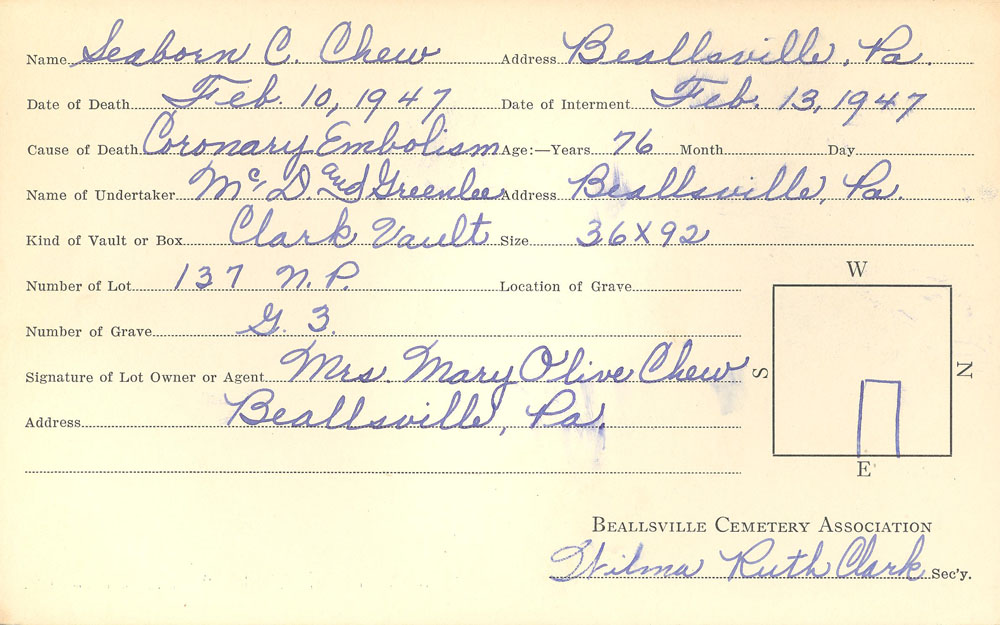 Name Seaborn C. Chew Address Beallsville, Pa.
Date of Death Feb. 10, 1947 Date of Interment Feb. 13, 1947
Cause of Death Coronary Embolism Age:—Years 76 Month Day
Name of Undertaker Mc, D. and Greenlee Address Beallsville, Pa.
Kind of Vault or Box Clark Vault Size 36X92
Number of Lot 137 N. P. Location of Grave
W
Number of Grave G. 3.
Signature of Lot Owner or Agent Mrs. Mary Olive Chew
S N
Address Beallsville, Pa.
E
BEALLSVILLE CEMETERY ASSOCIATION
Wilma Ruth Clark Sec'y.